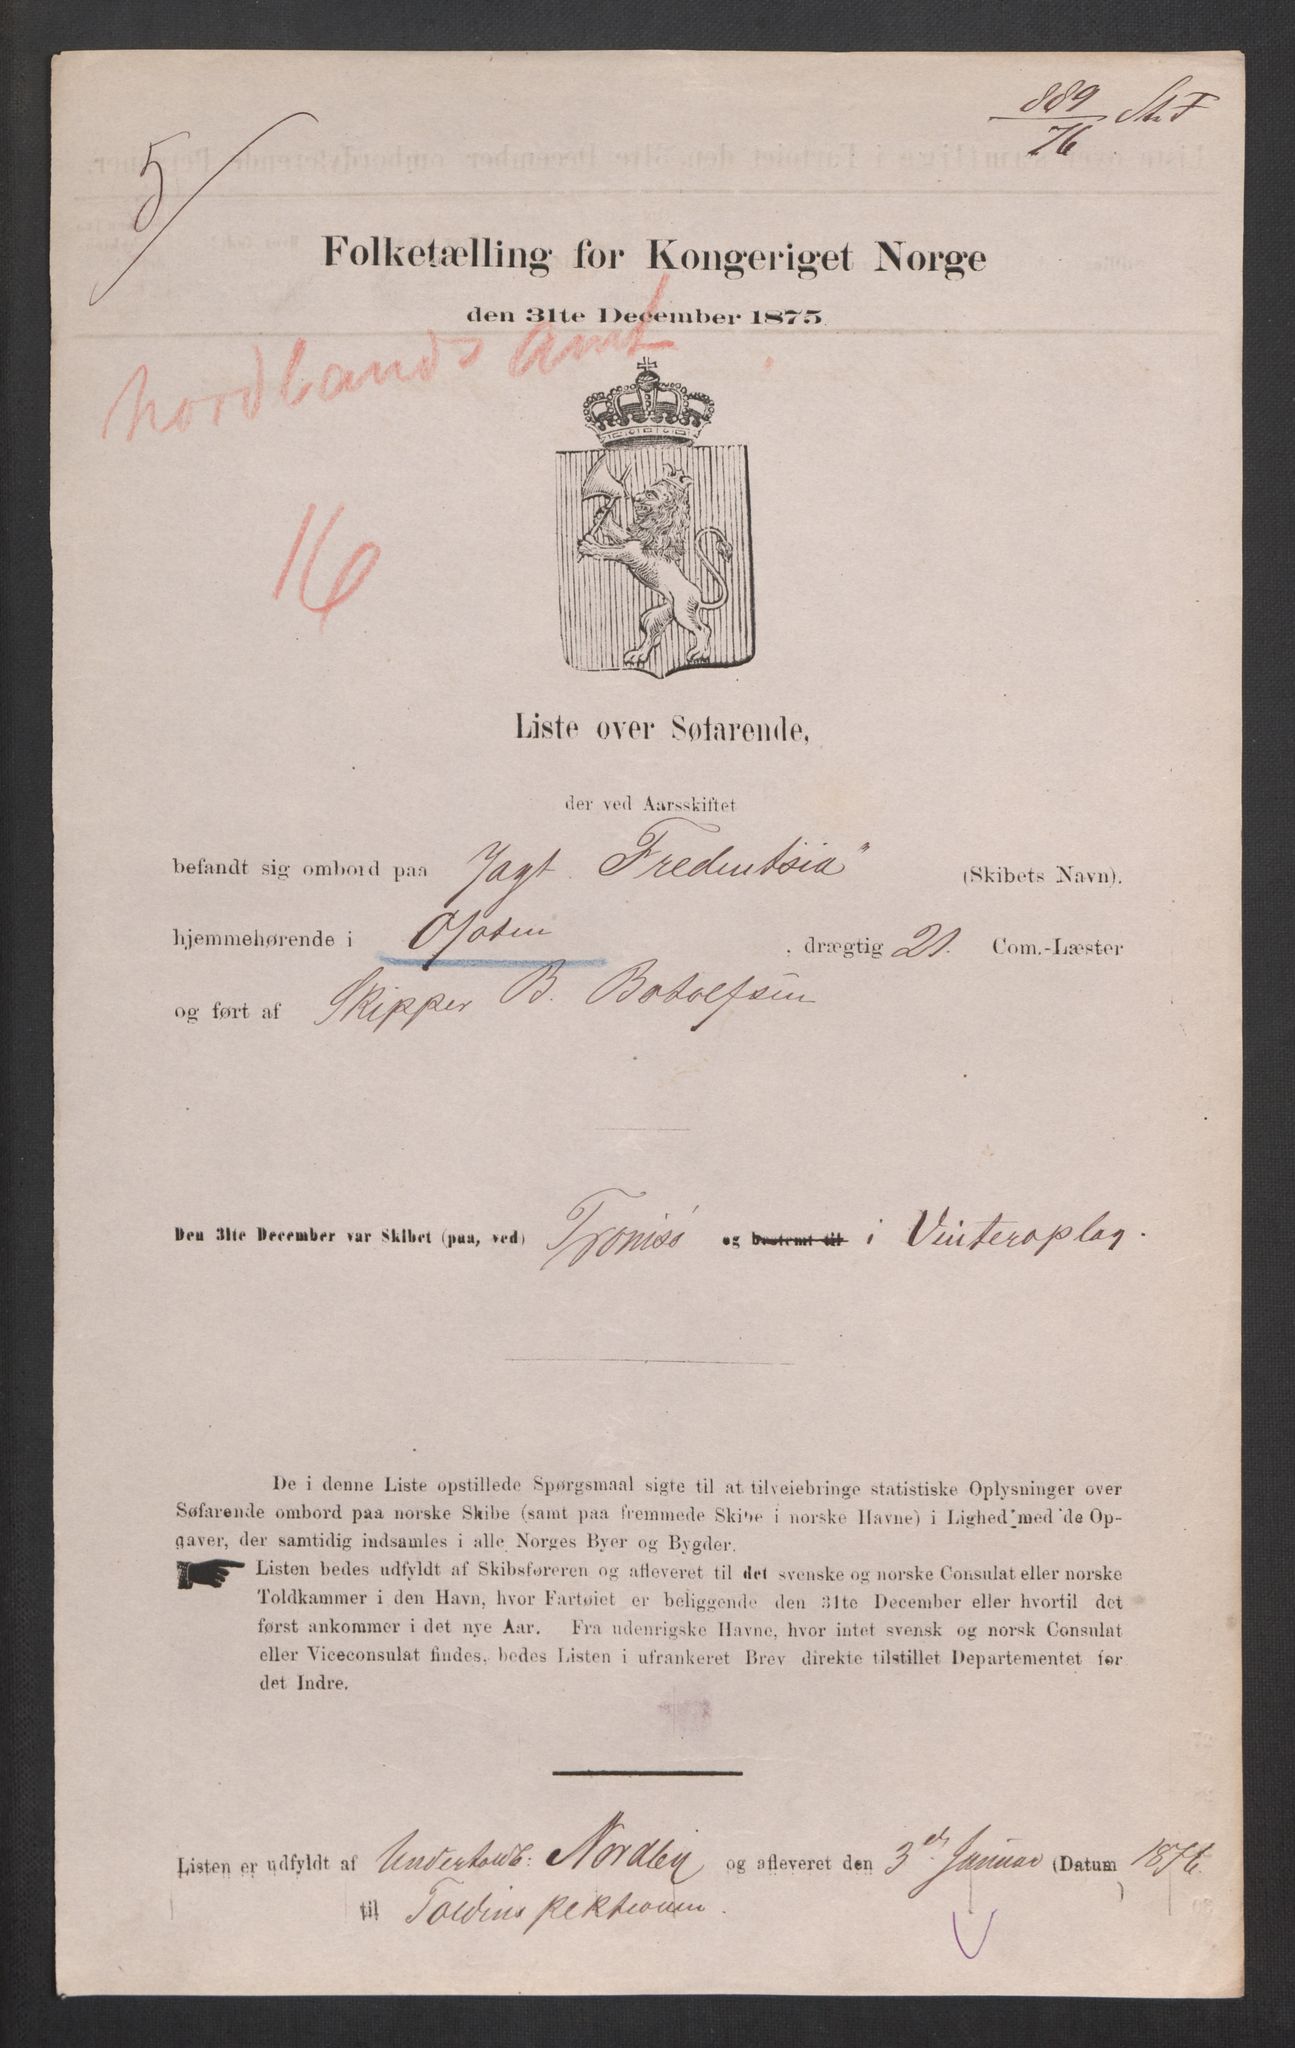 889
76
5
Folketælling for Kongeriget Norge
den 31te December 1875.
Nordlands amt
16
Liste over Søfarende,
der ved Aarsskiftet
befandt sig ombord paa Jagt (Skibets Navn).
hjemmehørende i Ofoten, drægtig 21. Com.-Læster
og ført af Skipper B. Botolfsen
Den 31te December var Skibet (paa, ved) Tromsö og bestemt til i Vinteroplag.
De i denne Liste opstillede Spørgsmaal sigte til at tilveiebringe statistiske Oplysninger over
Søfarende ombord paa norske Skibe (samt paa fremmede Skibe i norske Havne) i Lighed med de Op-
gaver, der samtidig indsamles i alle Norges Byer og Bygder.
Listen bedes udfyldt af Skibsføreren og afleveret til det svenske og norske Consulat eller norske
Toldkammer i den Havn, hvor Fartøiet er beliggende den 31te December eller hvortil det
først ankommer i det nye Aar. Fra udenrigske Havne, hvor intet svensk og norsk Consulat
eller Viceconsulat findes, bedes Listen i ufrankeret Brev direkte tilstillet Departementet for
det Indre.
Listen er udfyldt af Undertoldb: og afleveret den 3de Januar (Datum 1876.
til Toldinspektionen.